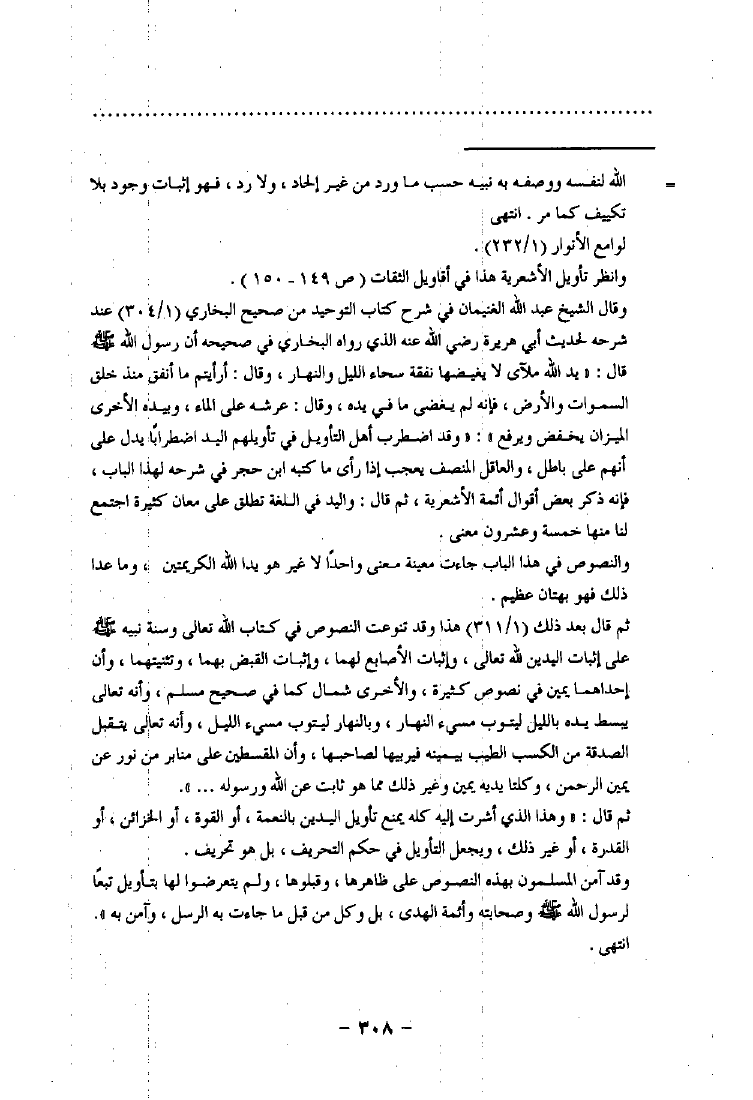 = الله لنفسه ووصفه به نبيه حسب ما ورد من غير إلحاد ، ولا رد ، فهو إثبات وجود بلا
تكييف كما مر . انتهى
لوامع الأنوار (٢٣٢/١) .
وانظر تأويل الأشعرية هذا في أقاويل الثقات ( ص ١٤٩ - ١٥٠ ) .
وقال الشيخ عبد الله الغنيمان في شرح كتاب التوحيد من صحيح البخاري (٣٠٤/١) عند
شرحه لحديث أبي هريرة رضي الله عنه الذي رواه البخاري في صحيحه أن رسول الله ﷺ
قال : « يد الله ملآى لا يغيضها نفقة سحاء الليل والنهار ، وقال : أرأيتم ما أنفق منذ خلق
السموات والأرض ، فإنه لم يغضى ما في يده ، وقال : عرشه على الماء ، وبيده الأخرى
الميزان يخفض ويرفع » : « وقد اضطرب أهل التأويل في تأويلهم اليد اضطرابًا يدل على
أنهم على باطل ، والعاقل المنصف يعجب إذا رأى ما كتبه ابن حجر في شرحه لهذا الباب ،
فإنه ذكر بعض أقوال أئمة الأشعرية ، ثم قال : واليد في اللغة تطلق على معان كثيرة اجتمع
لنا منها خمسة وعشرون معنى .
والنصوص في هذا الباب جاءت معينة معنى واحدًا لا غير هو يدا الله الكريمتين ، وما عدا
ذلك فهو بهتان عظيم .
ثم قال بعد ذلك (٣١١/١) هذا وقد تنوعت النصوص في كتاب الله تعالى وسنة نبيه ﷺ
على إثبات اليدين لله تعالى ، وإثبات الأصابع لهما ، وإثبات القبض بهما ، وتثنيتهما ، وأن
إحداهما يمين في نصوص كثيرة ، والأخرى شمال كما في صحيح مسلم ، وأنه تعالى
يبسط يده بالليل ليتوب مسيء النهار ، وبالنهار ليتوب مسيء الليل ، وأنه تعالى يتقبل
الصدقة من الكسب الطيب بيمينه فيربيها لصاحبها ، وأن المقسطين على منابر من نور عن
يمين الرحمن ، وكلتا يديه يمين وغير ذلك مما هو ثابت عن الله ورسوله ... ».
ثم قال : « وهذا الذي أشرت إليه كله يمنع تأويل اليدين بالنعمة ، أو القوة ، أو الخزائن ، أو
القدرة ، أو غير ذلك ، ويجعل التأويل في حكم التحريف ، بل هو تحريف .
وقد آمن المسلمون بهذه النصوص على ظاهرها ، وقبلوها ، ولم يتعرضوا لها بتأويل تبعًا
لرسول الله ﷺ وصحابته وأئمة الهدى ، بل وكل من قبل ما جاءت به الرسل ، وآمن به ».
انتهى .
- ٣٠٨ -